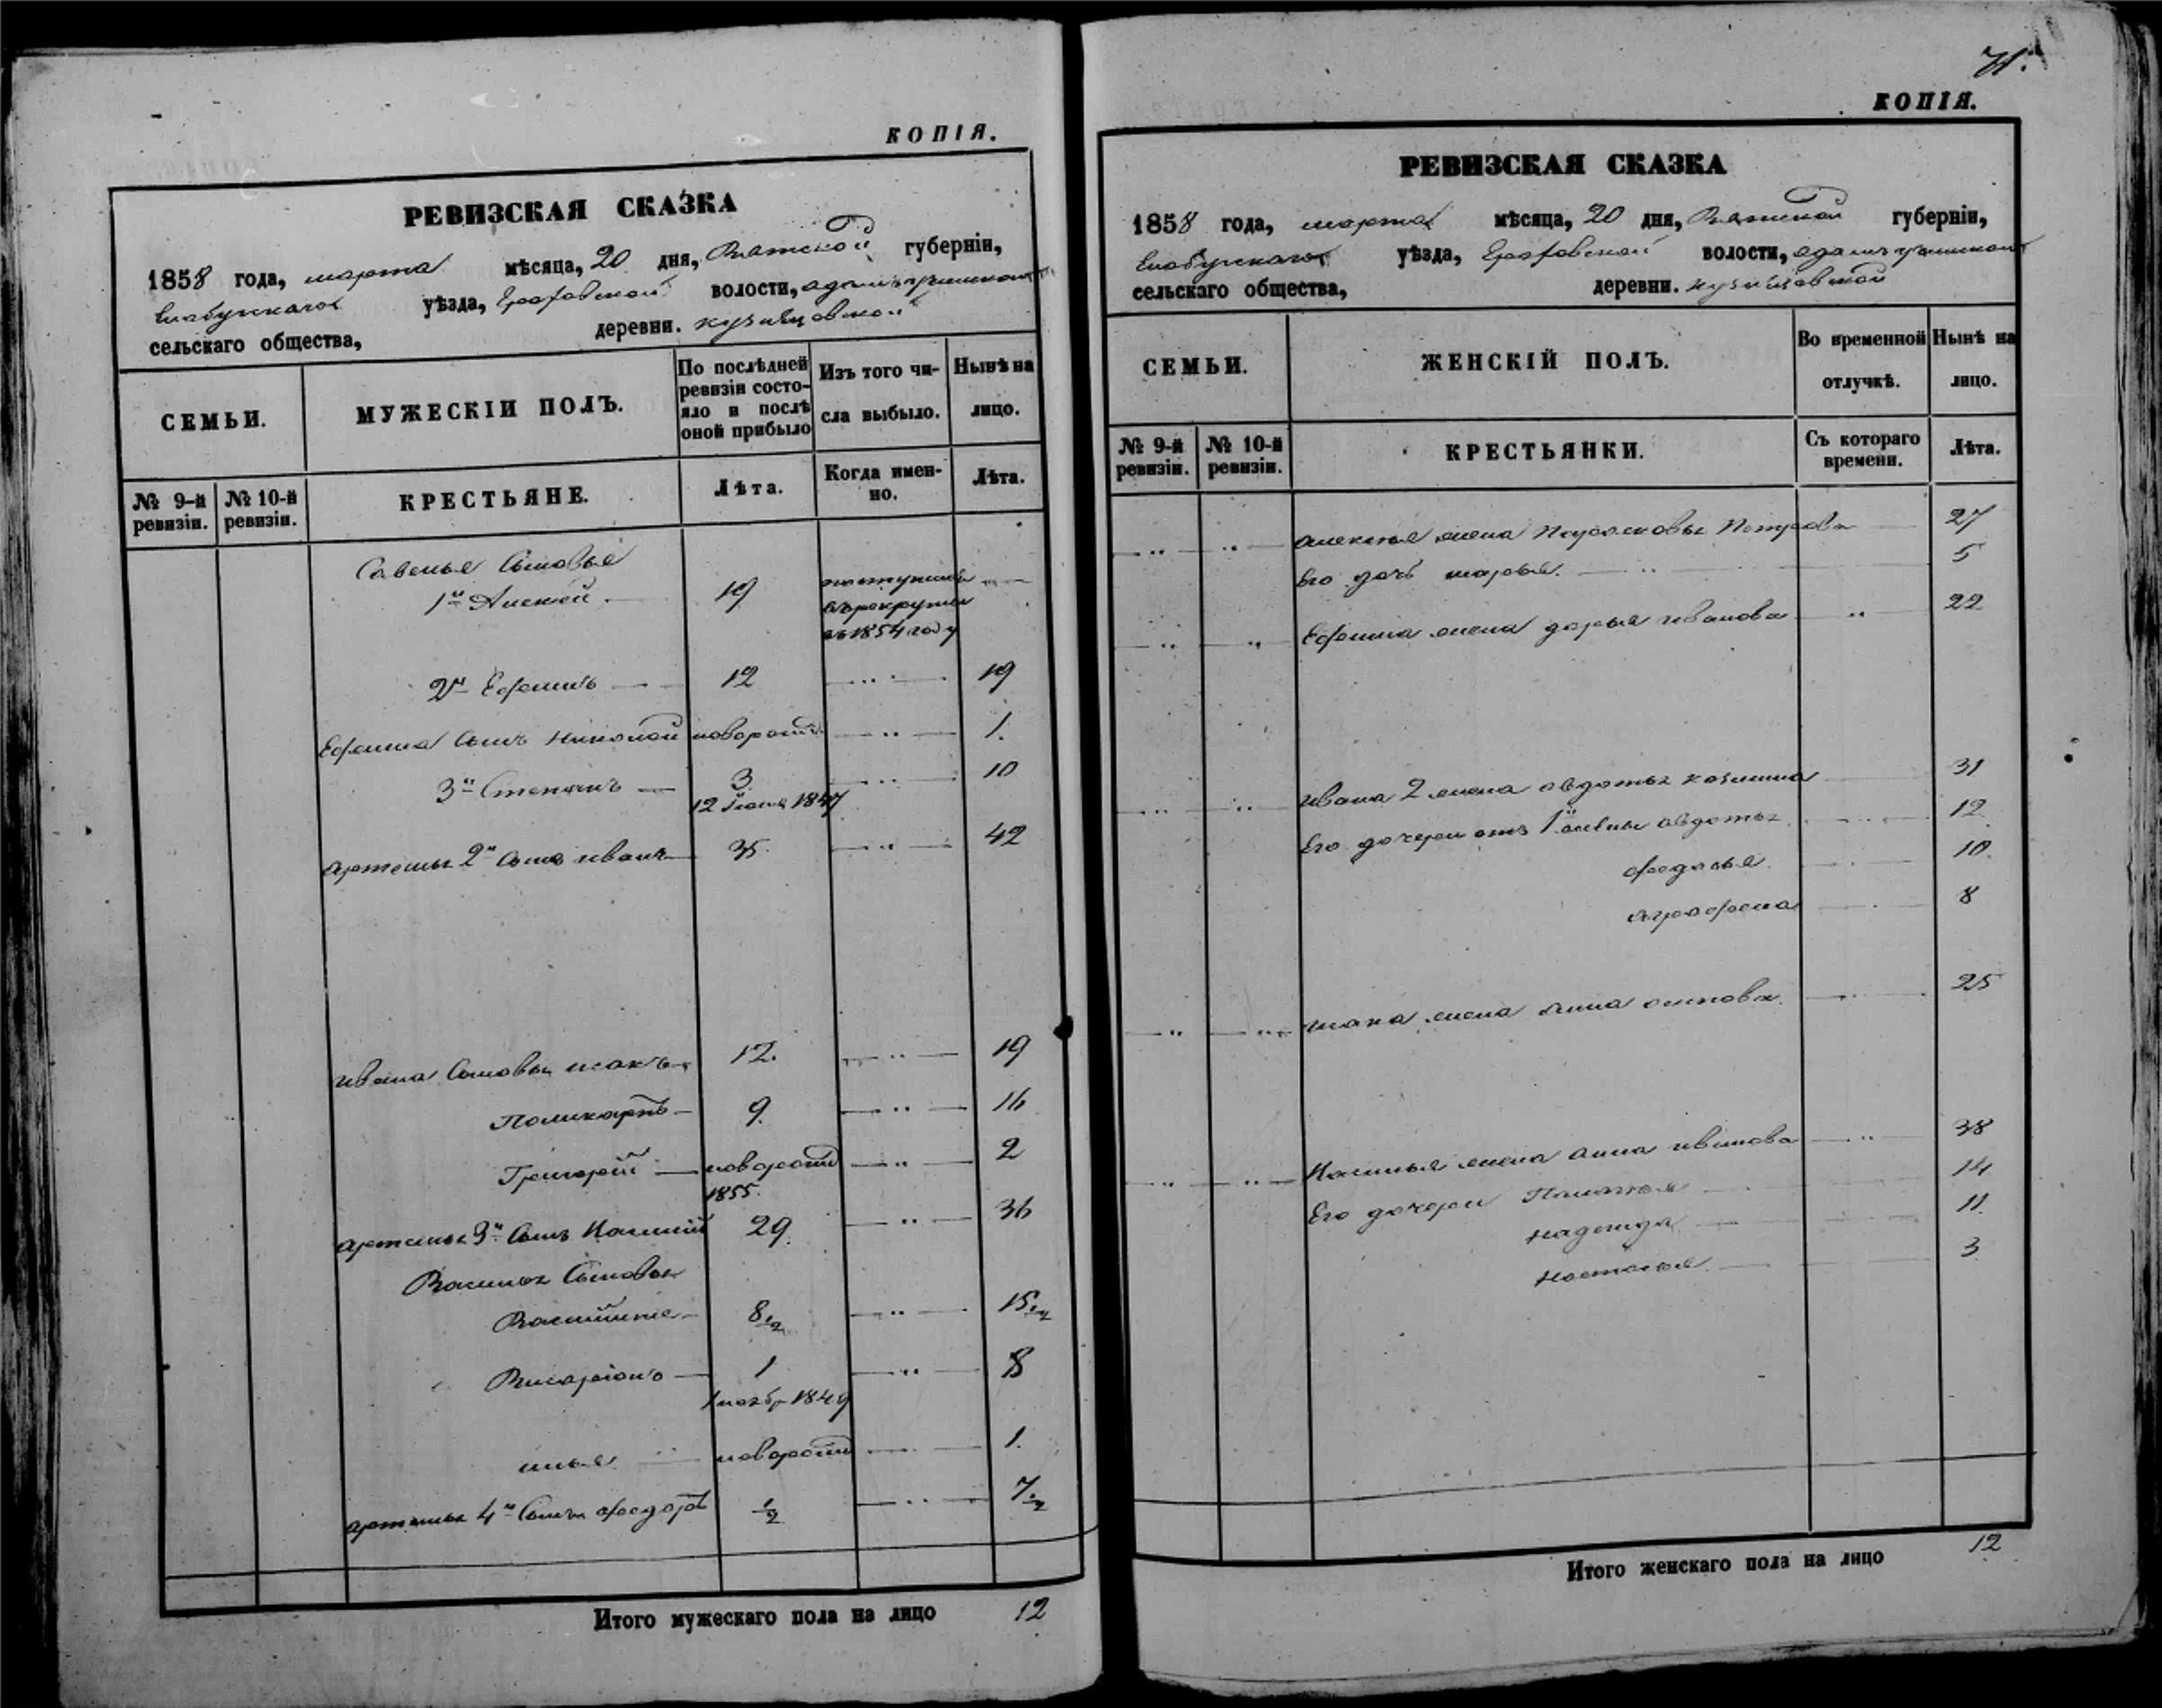 КОПІЯ.
РЕВИЗСКАЯ СКАЗКА
1858 года, марта мѣсяца, 20 дня, Вятской губерніи,
Елабужскаго уѣзда, Граховской волости,
сельскаго общества, деревни.
СЕМЬИ.
МУЖЕСКІЙ ПОЛЪ.
По послѣдней ревизіи состояло и послѣ оной прибыло
Изъ того числа выбыло.
Нынѣ на лицо.
№ 9-й ревизіи.
№ 10-й ревизіи.
КРЕСТЬЯНЕ.
Лѣта.
Когда именно.
Лѣта.
Савелья Сыновья
1й Алексей 19 поступилъ
въ рекруты
въ 1854 году
2й Ефимъ 12 19
Ефима Сынъ Николай новорожд 1.
3й Степанъ 3 10
12 Iюня 1847
Артемья 2й Сынъ иванъ 35. 42
ивана Сыновья исакъ 12. 19
Поликарпъ 9. 16
Григорій новорожд 2
1855.
Артемья 3й Сынъ 29. 36
Сыновья
8 1/2 15 1/2
Висаріонъ 1 8
1 ноябр 1849
илья новорожд 1.
Артемья 4й Сынъ Федоръ 1/2 7 1/2
Итого мужескаго пола на лицо 12
71.
КОПІЯ.
РЕВИЗСКАЯ СКАЗКА
1858 года, марта мѣсяца, 20 дня, Вятской губерніи,
Елабужскаго уѣзда, Граховской волости,
сельскаго общества, деревни.
СЕМЬИ.
ЖЕНСКІЙ ПОЛЪ.
Во временной отлучкѣ.
Нынѣ на лицо.
№ 9-й ревизіи.
№ 10-й ревизіи.
КРЕСТЬЯНКИ.
Съ котораго времени.
Лѣта.
Алексея жена Петрова 27
Его дочь марья. 5
Ефима жена дарья иванова 22
ивана 2 жена авдотья козмина 31
Его дочери отъ 1й жены авдотья 12
федосья 10.
аграфена 8
исака жена анна осипова. 25
жена анна иванова 38
Его дочери Пелагея 14
надежда 11.
настасья. 3
Итого женскаго пола на лицо 12